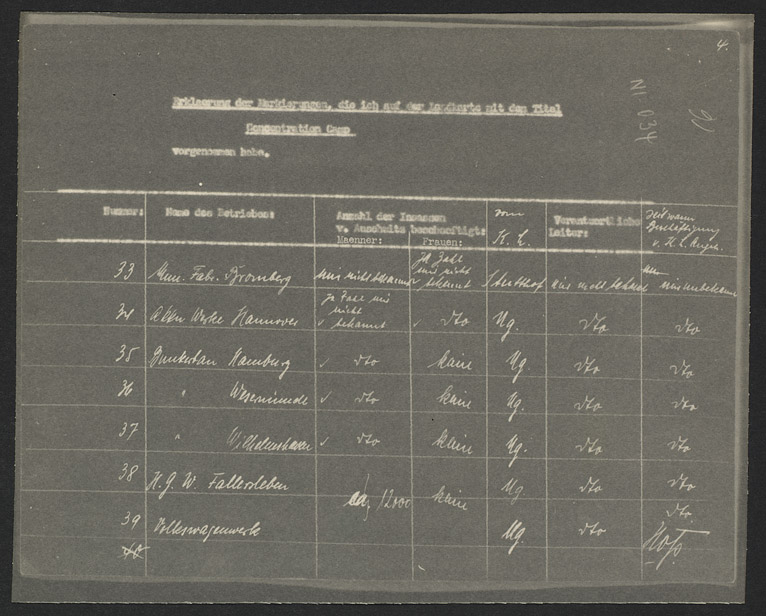 4.
NI 034
Erklaerung der Markierungen, die ich auf der Landkarte mit dem Titel
Concentration Camp
vorgenommen habe.
Nummer: Name des Betriebes: Anzahl der Insassen v. Auschwitz beschaeftigt: Maenner: Frauen: vom K. L. Verantwortliche Leiter: seit wann Beschäftigung v. K. L. Angeh.
33 Mun. Fabr. Bromberg mir nicht bekannt ja Zahl mir nicht bekannt Stutthof mir nicht bekannt mir unbekannt
34 Werke Hannover ja Zahl mir nicht bekannt dto Ng. dto dto
35 Bunkerbau Hamburg dto keine Ng. dto dto
36 " Wesermünde dto keine Ng. dto dto
37 " Wilhelmshaven dto keine Ng. dto dto
38 H.G.W. Fallersleben keine Ng dto dto
39 Volkswagenwerk 12000 Ng. dto dto
40